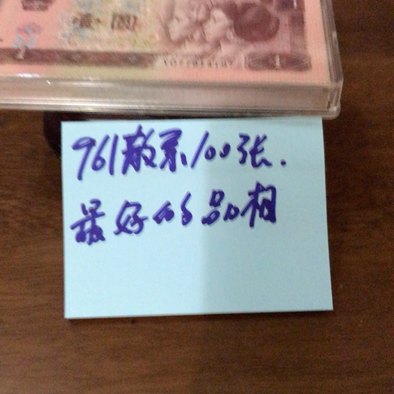 961散票100张.
最好的品相